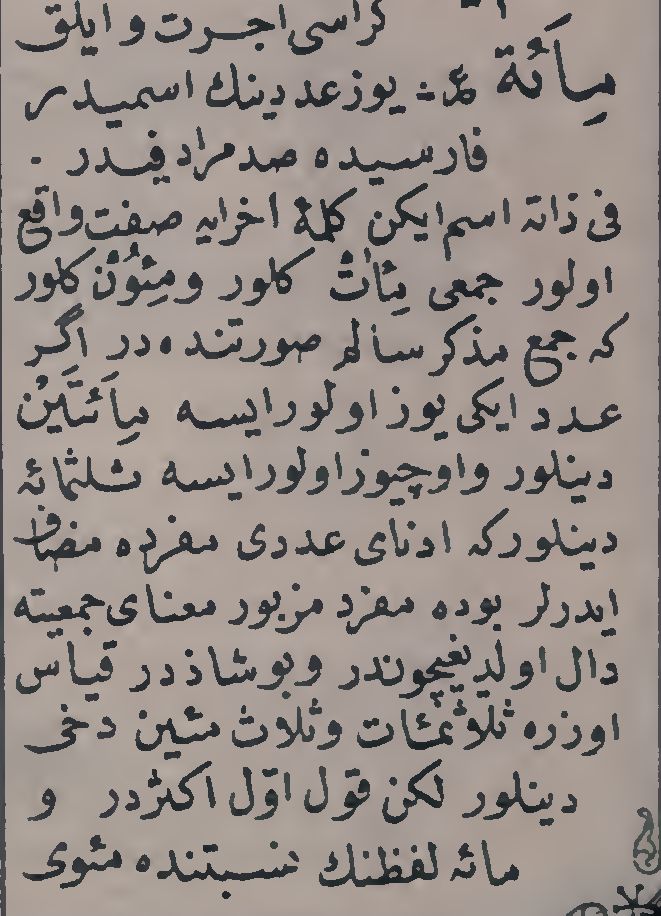 كراسى اجرت و ايلق
مِاَئَة ع يوز عددينك اسميدر
فارسيده صد مرادفيدر .
فى ذاته اسم ايكن كلمۀ اخرايه صفت واقع
اولور جمعى مِئاتٌ كلور و مِئُونْ كلور
كه جمع مذكر سالم صورتنده در اگر
عدد ايكى يوز اولورايسه مِاَئَتَيْنْ
دينلور واوچيوز اولورايسه ثلثمائه
دينلوركه ادناى عددى مفرده مضاف
ايدرلر بوده مفرد مزبور معناى جمعيته
دال اولديغيچوندر وبو شاذدر قياس
اوزره ثلاثمئات وثلاث مئين دخى
دينلور لكن قول اوّل اكثردر و
مائه لفظنك نسبتنده مئوى